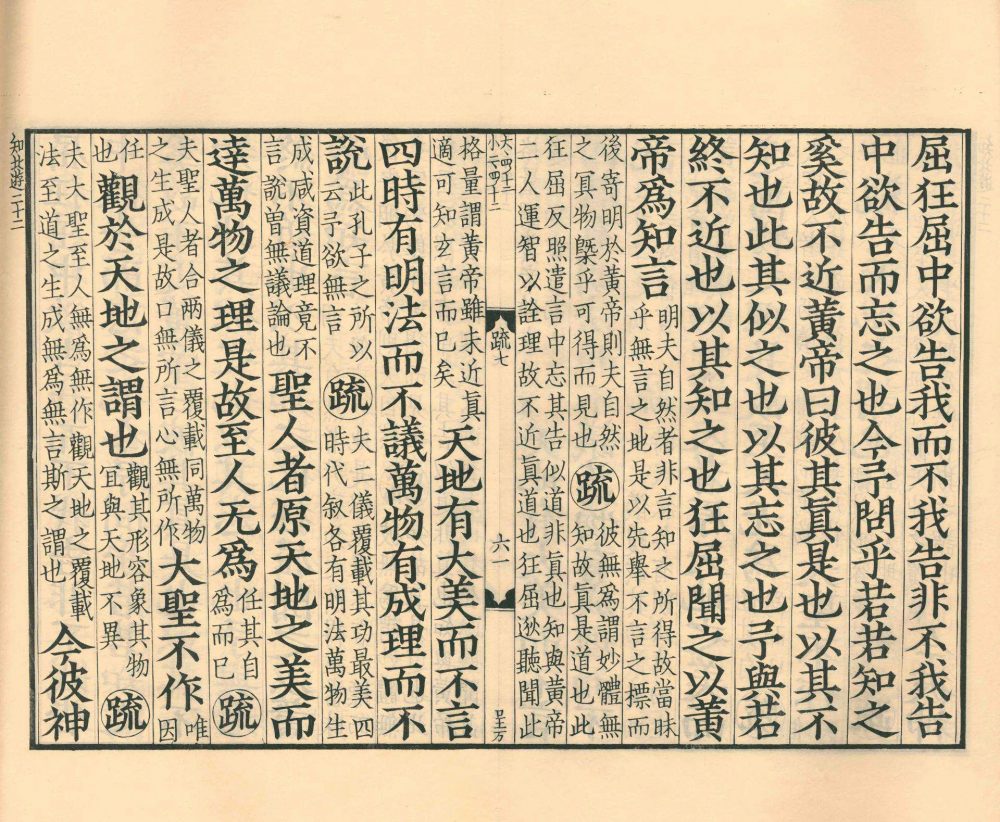 屈狂屈中欲告我而不我告非不我告
中欲告而忘之也今予問乎若若知之
奚故不近黃帝曰彼其眞是也以其不
知也此其似之也以其忘之也予與若
終不近也以其知之也狂屈聞之以黃
帝爲知言
明夫自然者非言知之所得故當昧
乎無言之地是以先舉不言之標而
後寄明於黃帝則夫自然
之冥物槩乎可得而見也
疏
彼無爲謂妙體無
知故眞是道也此
狂屈反照遣言中忘其告似道非眞也知與黃帝
二人運智以詮理故不近眞道也狂屈逖聽聞此
疏七
六一
格量謂黃帝雖未近眞
適可知玄言而已矣
天地有大美而不言
四時有明法而不議萬物有成理而不
說
此孔子之所以
云予欲無言
疏
夫二儀覆載其功最美四
時代叙各有明法萬物生
成咸資道理竟不
言說曾無議論也
聖人者原天地之美而
達萬物之理是故至人无爲
任其自
爲而已
疏
夫聖人者合兩儀之覆載同萬物
之生成是故口無所言心無所作
大聖不作
唯
因
任
也
觀於天地之謂也
觀其形容象其物
宜與天地不異
疏
夫大聖至人無爲無作觀天地之覆載
法至道之生成無爲無言斯之謂也
今彼神
知北遊二十二